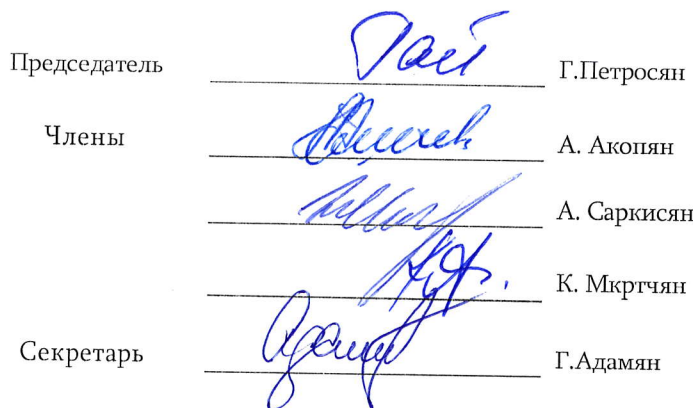 Председатель Г.Петросян
Члены А. Акопян
А. Саркисян
К. Мкртчян
Секретарь Г.Адамян